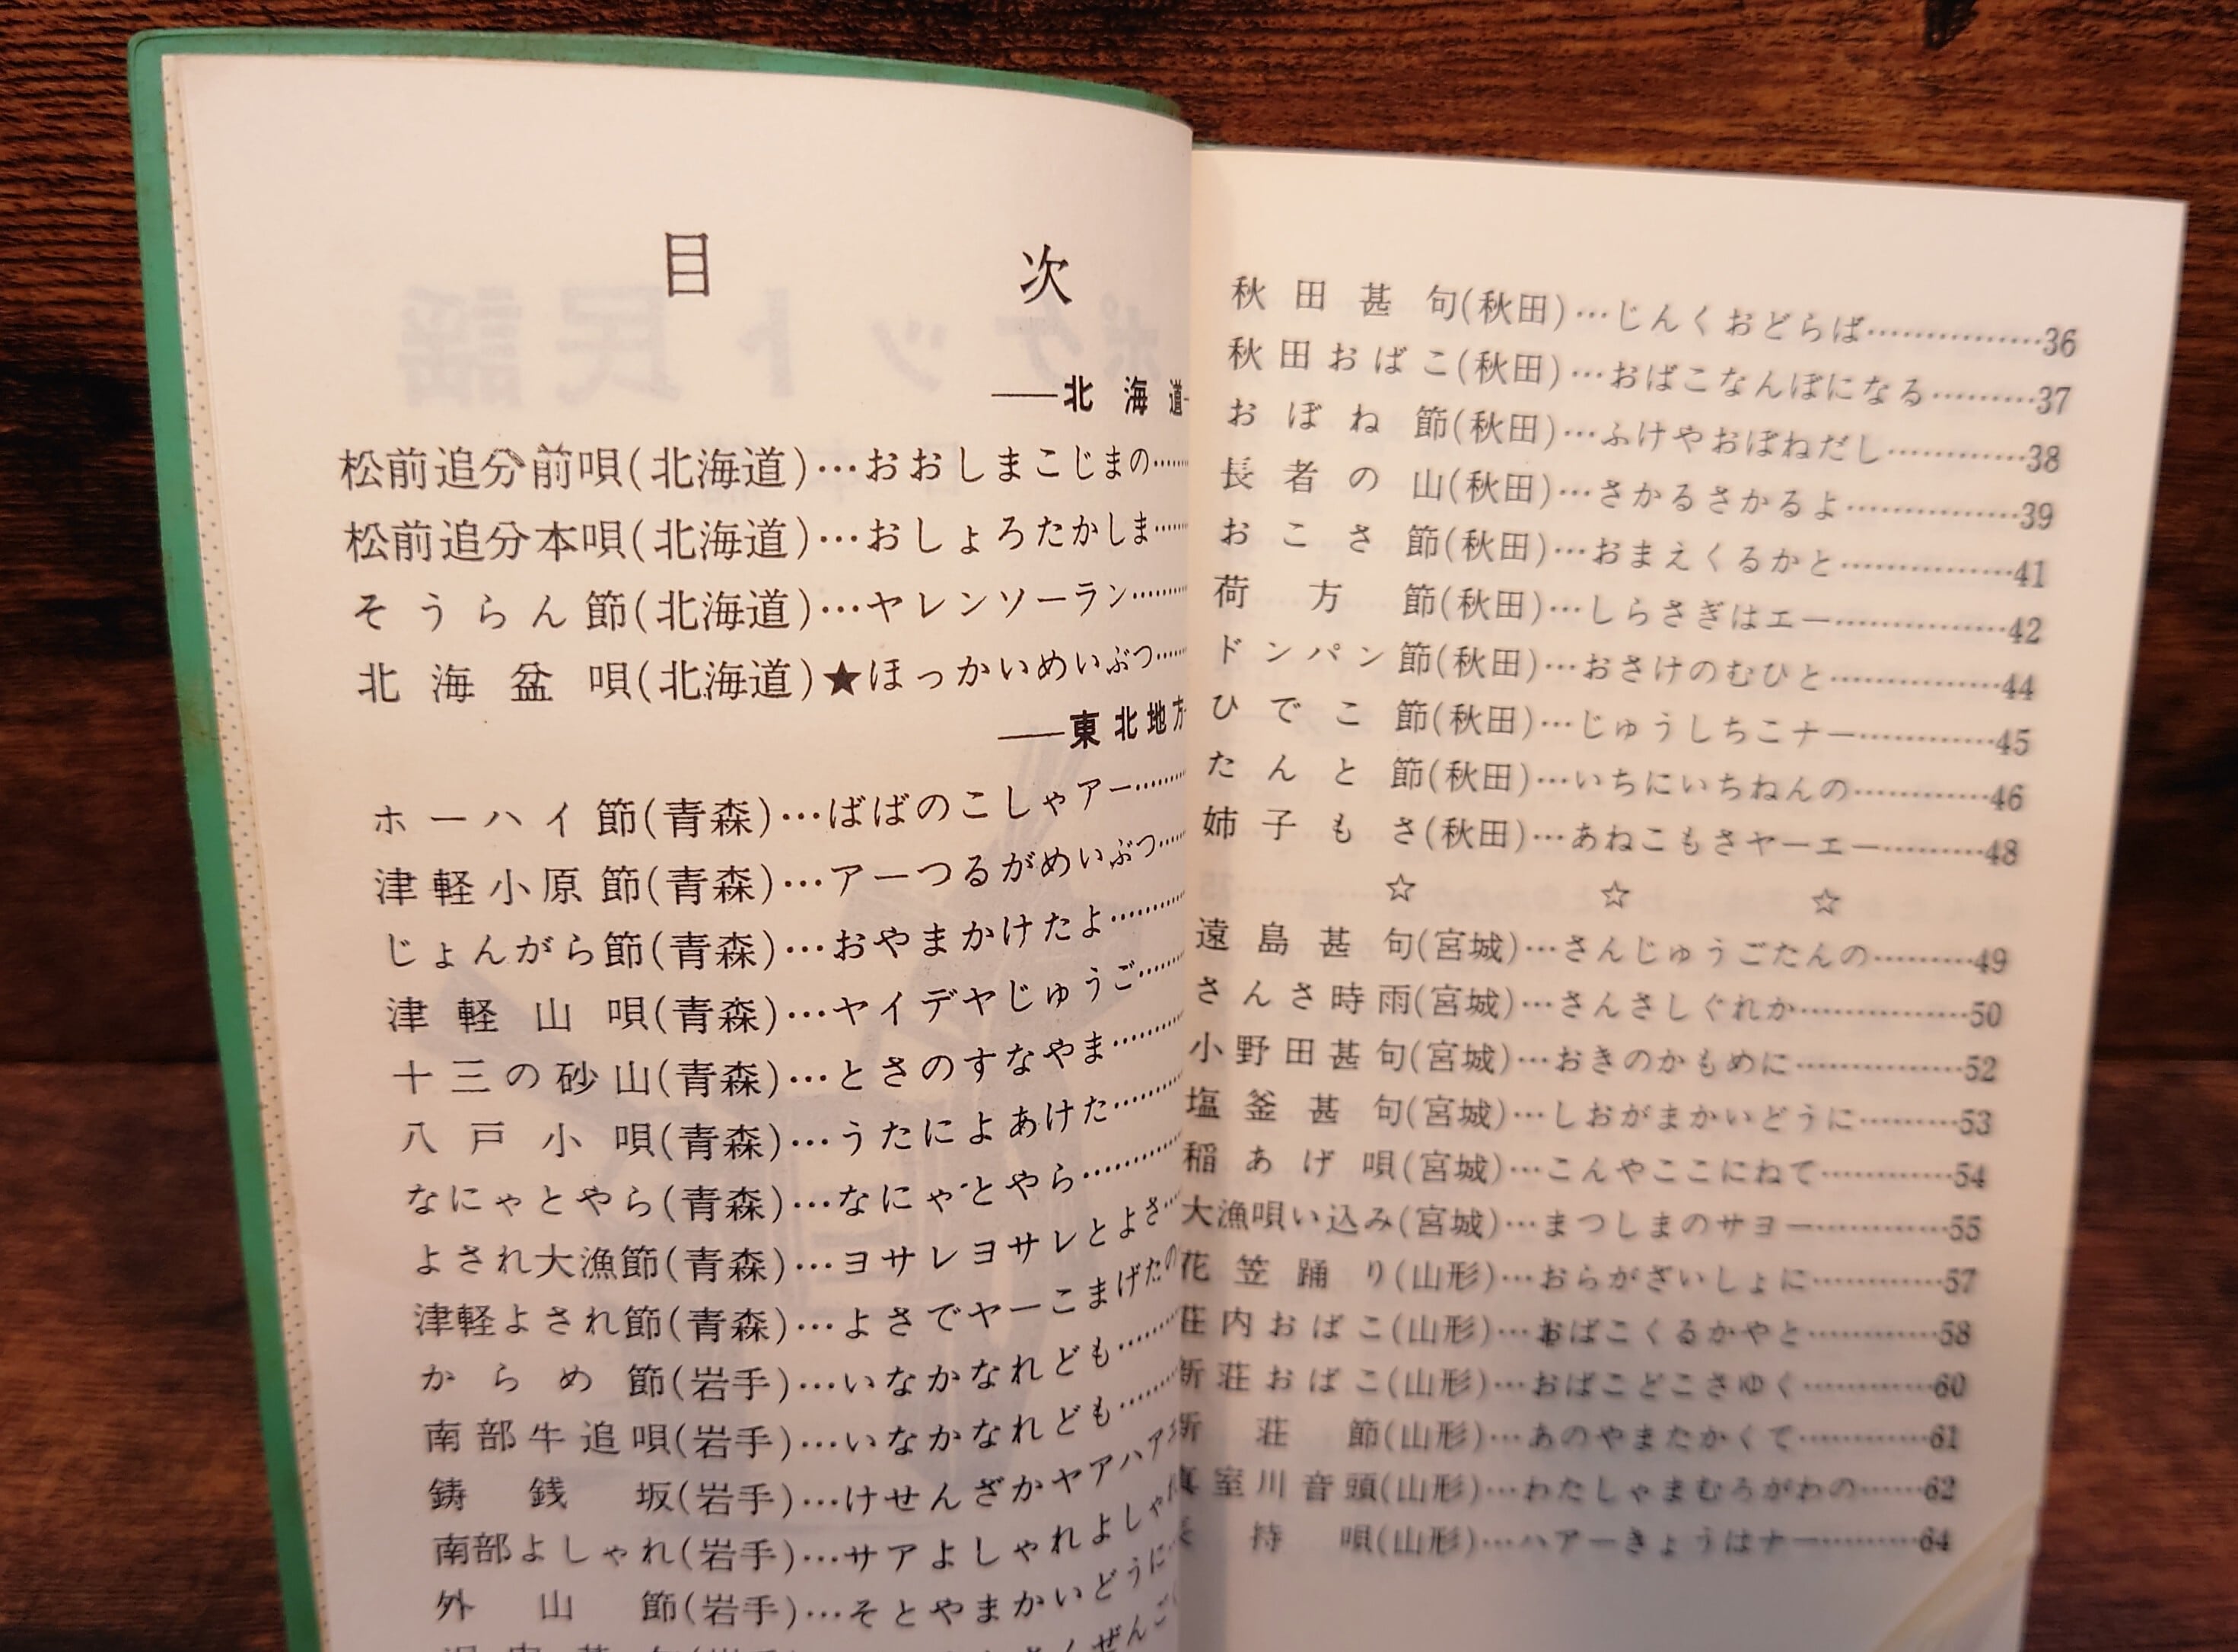 目次
——北海道
松前追分前唄(北海道)…おおしまこじまの……
松前追分本唄(北海道)…おしょろたかしま……
そうらん節(北海道)…ヤレンソーラン………
北海盆唄(北海道)★ほっかいめいぶつ……
——東北地方
ホーハイ節(青森)…ばばのこしゃアー………
津軽小原節(青森)…アーつるがめいぶつ……
じょんがら節(青森)…おやまかけたよ…………
津軽山唄(青森)…ヤイデヤじゅうご………
十三の砂山(青森)…とさのすなやま…………
八戸小唄(青森)…うたによあけた…………
なにゃとやら(青森)…なにゃとやら……………
よされ大漁節(青森)…ヨサレヨサレとよさ…
津軽よされ節(青森)…よさでヤーこまげたの
からめ節(岩手)…いなかなれども………
南部牛追唄(岩手)…いなかなれども………
鋳銭坂(岩手)…けせんざかヤアハア
南部よしゃれ(岩手)…サアよしゃれよしゃれ
外山節(岩手)…そとやまかいどうに
秋田甚句(秋田)…じんくおどらば………………36
秋田おばこ(秋田)…おばこなんぼになる…………37
おぼね節(秋田)…ふけやおぼねだし……………38
長者の山(秋田)…さかるさかるよ………………39
おこさ節(秋田)…おまえくるかと………………41
荷方節(秋田)…しらさぎはエー………………42
ドンパン節(秋田)…おさけのむひと………………44
ひでこ節(秋田)…じゅうしちこナー……………45
たんと節(秋田)…いちにいちねんの……………46
姉子もさ(秋田)…あねこもさヤーエー…………48
☆ ☆ ☆
遠島甚句(宮城)…さんじゅうごたんの…………49
さんさ時雨(宮城)…さんさしぐれか………………50
小野田甚句(宮城)…おきのかもめに………………52
塩釜甚句(宮城)…しおがまかいどうに…………53
稲あげ唄(宮城)…こんやここにねて……………54
大漁唄い込み(宮城)…まつしまのサヨー……………55
花笠踊り(山形)…おらがざいしょに……………57
荘内おばこ(山形)…おばこくるかやと……………58
新荘おばこ(山形)…おばこどこさゆく……………60
新荘節(山形)…あのやまたかくて……………61
真室川音頭(山形)…わたしゃまむろがわの……62
長持唄(山形)…ハアーきょうはナー…………64